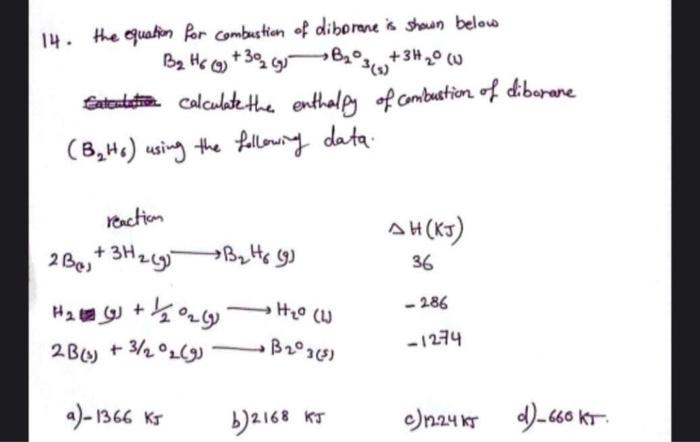 14. the equation for combustion of diborane is shown below
B2 H6 (g) + 3O2 (g) → B2O3(s) + 3H2O (l)
calculate the enthalpy of combustion of diborane
(B2H6) using the following data.
reaction ΔH (KJ)
2B(s) + 3H2(g) → B2H6 (g) 36
H2 (g) + 1/2 O2(g) → H2O (l) - 286
2B(s) + 3/2 O2(g) → B2O3(s) - 1274
a) - 1366 KJ b) 2168 KJ c) 1224 KJ d) - 660 KJ.